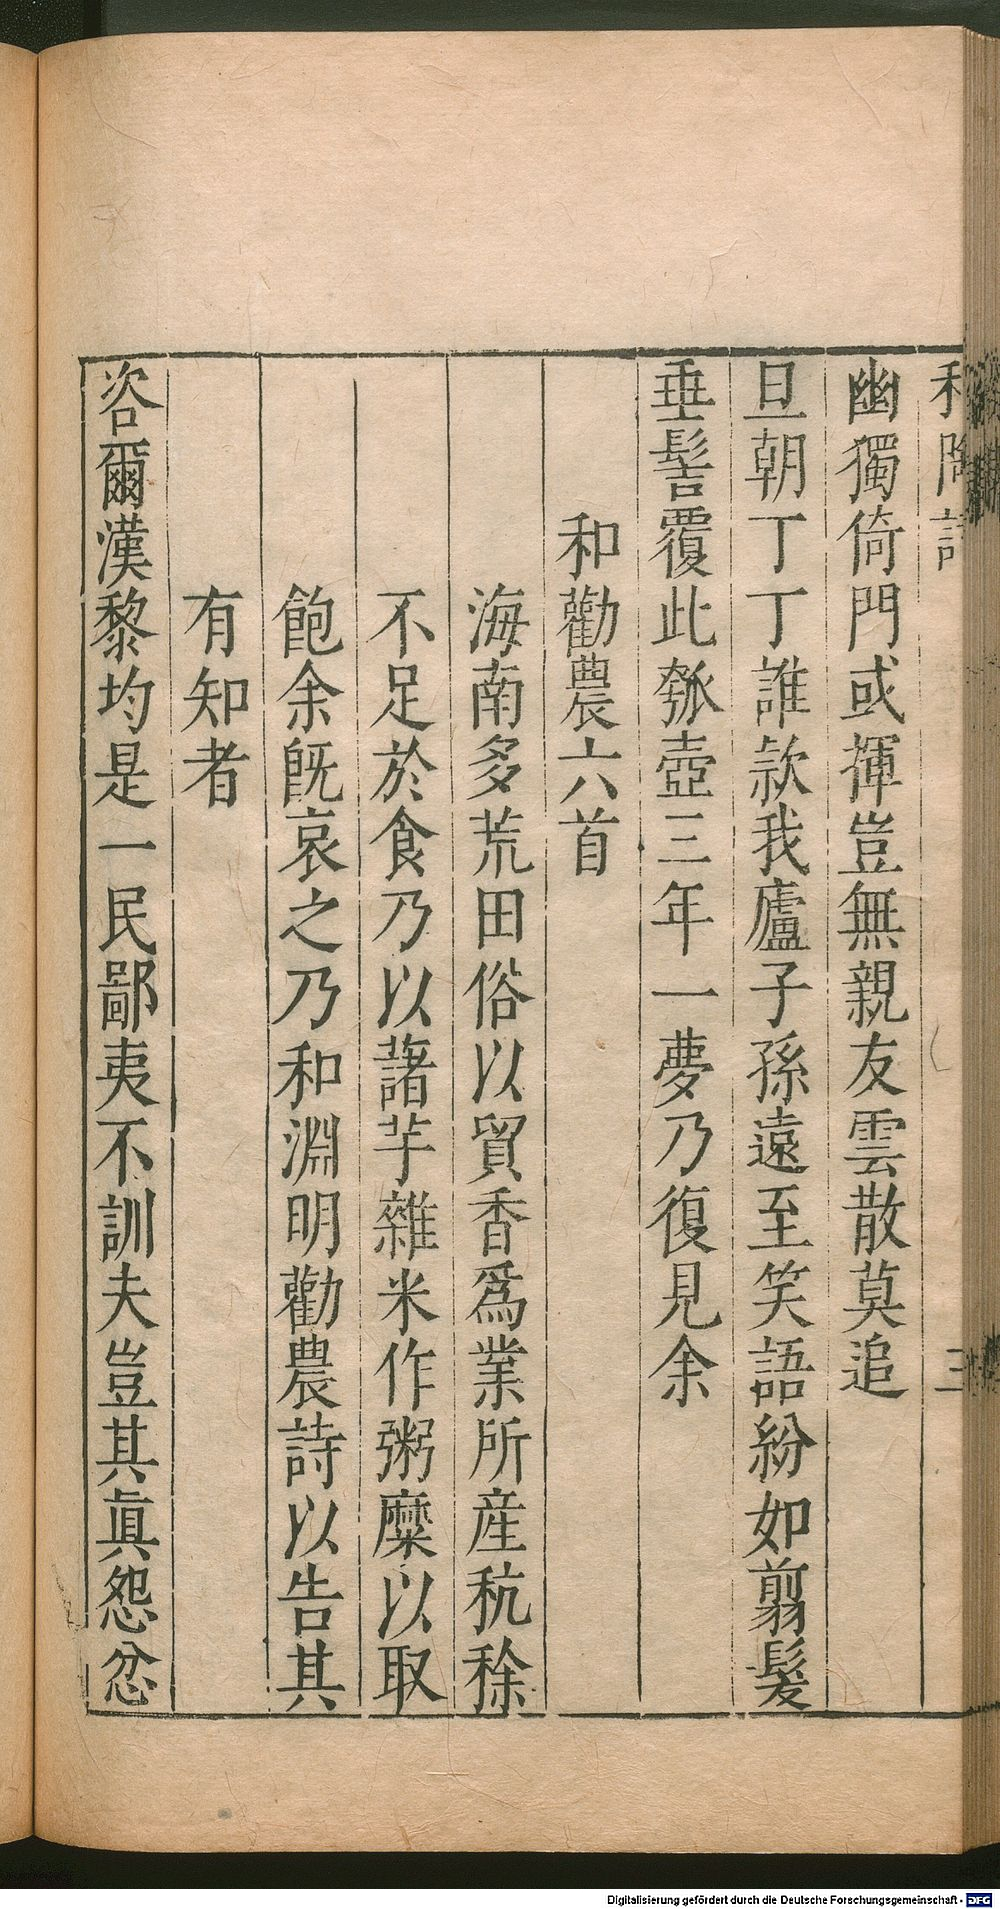 和陶詩 三
幽獨倚門或揮豈無親友雲散莫追
旦朝丁丁誰款我廬子孫遠至笑語紛如翦髮
垂髻覆此瓠壺三年一夢乃復見余
和勸農六首
海南多荒田俗以貿香爲業所産秔稌
不足於食乃以藷芋雜米作粥糜以取
飽余旣哀之乃和淵明勸農詩以告其
有知者
咨爾漢黎均是一民鄙夷不訓夫豈其眞怨忿
Digitalisierung gefördert durch die Deutsche Forschungsgemeinschaft - DFG